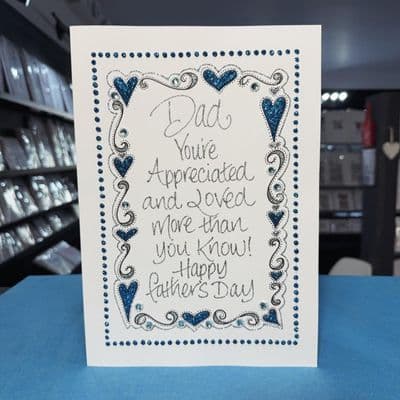 Dad
You're
Appreciated
and Loved
more than
you know!
Happy
fathers Day